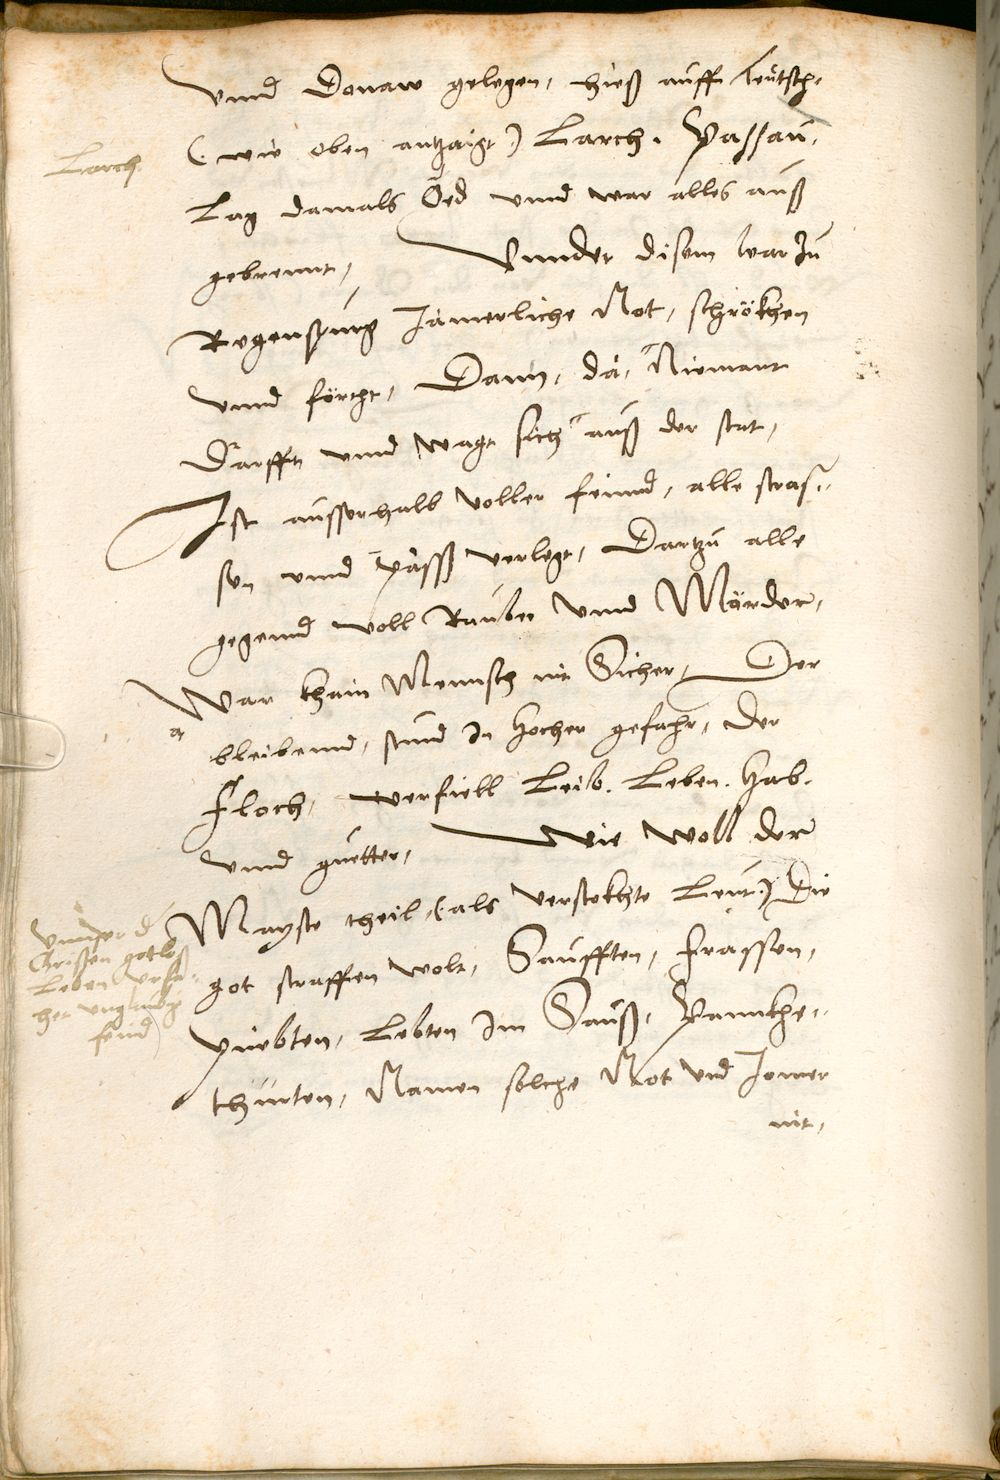 vnnd Donaw gelegen, hieß auff Teutsch,
(: wie oben antzaigt :) Larch. Passau,
Larch.
Lag damals Öed vnnd war alles auß
gebrennt, Vnnder disem war Zu
Regenspurg Jamerliche Not, schrökhen
vnnd forcht, Dann, da, Niemant
Darfft vnnd wagt sich auß der stat,
Ist ausserhalb voller feinnd, alle stras¬
sen vnnd päss verlegt, Dartzu alle
gegennd voll Rauber vnnd Mörder,
War khain Mennsch nit Sicher, Der
bleibennd, stund In hocher gefahr, der
Floch, verfiell Leib. Leben. Hab.
vnnd guetter, Wie woll der
Mayste theil, (: als verstokhte Leut :) Die
got straffen wolt, Saufften, Frassen,
Puebten, Lebten Im Sauß, Pannkhe¬
thürten, Namen solche Not vnd Jamer
nit,
Vnnser d
Christen gotloß
Leben vrsa¬
her vnglaubg
feind